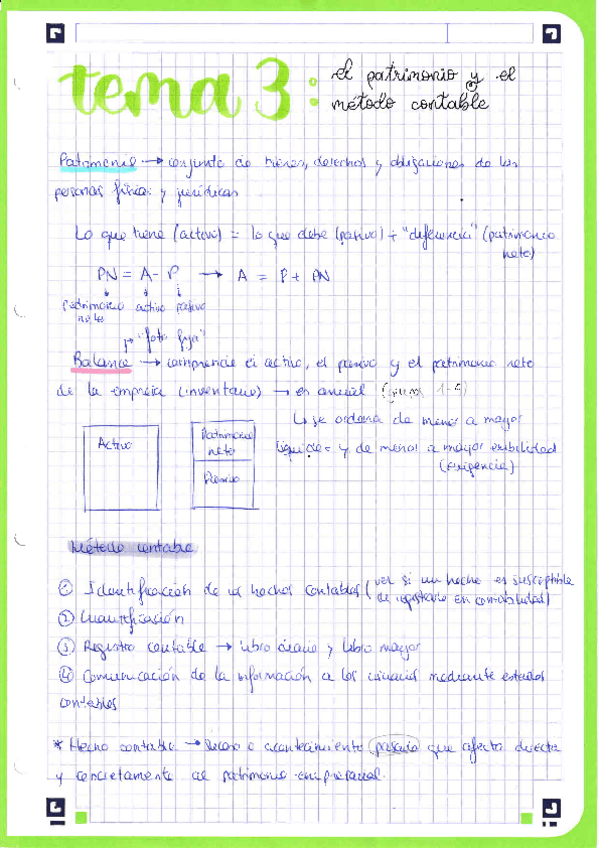 tema 3: el patrimonio y el
método contable
Patrimonio → conjunto de bienes, derechos y obligaciones de las
personas físicas y jurídicas
Lo que tiene (activo) = lo que debe (pasivo) + "diferencia" (patrimonio
neto)
PN = A - P → A = P + PN
patrimonio activo pasivo
neto
→ "foto fija"
Balance → comprende el activo, el pasivo y el patrimonio neto
de la empresa (inventario) → es anual
↳ se ordena de menor a mayor
Activo
Patrimonio
neto
liquidez y de menor a mayor exibilidad
Pasivo
(exigencia)
Método contable
① Identificación de los hechos contables (ver si un hecho es susceptible
de registrarse en contabilidad)
② Cuantificación
③ Registro contable → libro diario y libro mayor
④ Comunicación de la información a los usuarios mediante estados
contables
* Hecho contable → suceso o acontecimiento pasado que afecta directa
y concretamente al patrimonio empresarial.